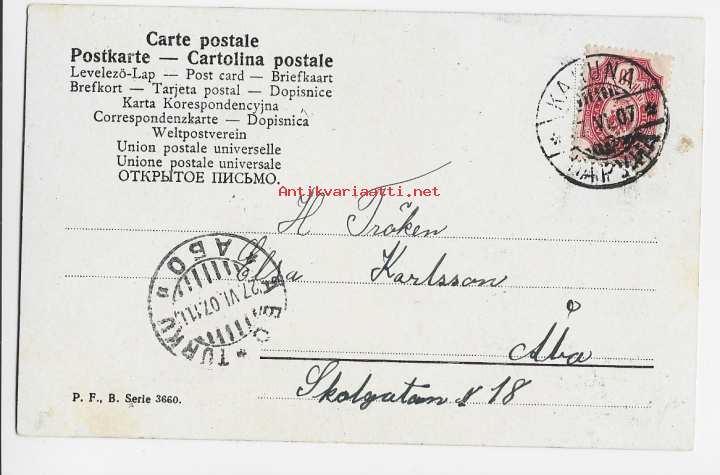 Carte postale
Postkarte — Cartolina postale
Levelezö-Lap — Post card — Briefkaart
Brefkort — Tarjeta postal — Dopisnice
Karta Korespondencyjna
Correspondenzkarte — Dopisnica
Weltpostverein
Union postale universelle
Unione postale universale
ОТКРЫТОЕ ПИСЬМО.
KARUNA
VI.07
КАРУНА
Antikvariaatti.net
H Fröken
Elsa Karlsson
Åbo
Skolgatan N 18
АБО
ÅBO
27.VI.07.11.
TURKU
P. F., B. Serie 3660.